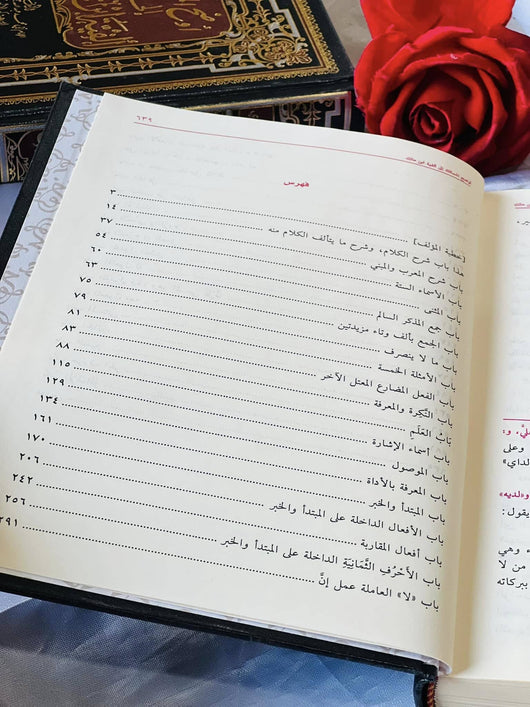 توضيح المسالك إلى ألفية ابن مالك ٦٣٩
فهرس
[خطبة المؤلف] ٣
هذا باب شرح الكلام، وشرح ما يتألف الكلام منه ١٤
باب شرح المعرب والمبني ٣٧
باب الأسماء الستة ٥٤
باب المثنى ٦٠
باب جمع المذكر السالم ٦٣
باب الجمع بألف وتاء مزيدتين ٧٥
باب ما لا ينصرف ٧٩
باب الأمثلة الخمسة ٨١
باب الفعل المضارع المعتل الآخر ٨٣
باب النَّكِرة والمعرفة ٨٨
بَابُ العَلَمِ ١١٥
باب أسماء الإشارة ١٢٩
باب الموصول ١٣٤
باب المعرفة بالأداة ١٦١
باب المبتدأ والخبر ١٧٠
باب الأفعال الداخلة على المبتدأ والخبر ٢٠٦
باب أفعال المقاربة ٢٤٢
باب الأَحْرُفِ الثَّمَانِيَةِ الداخلة على المبتدأ والخبر ٢٥٦
باب «لا» العاملة عمل إنَّ ٢٩١
وعلى
لداي»
و«لديه»
يقول:
وهي
من لا
ببركاته